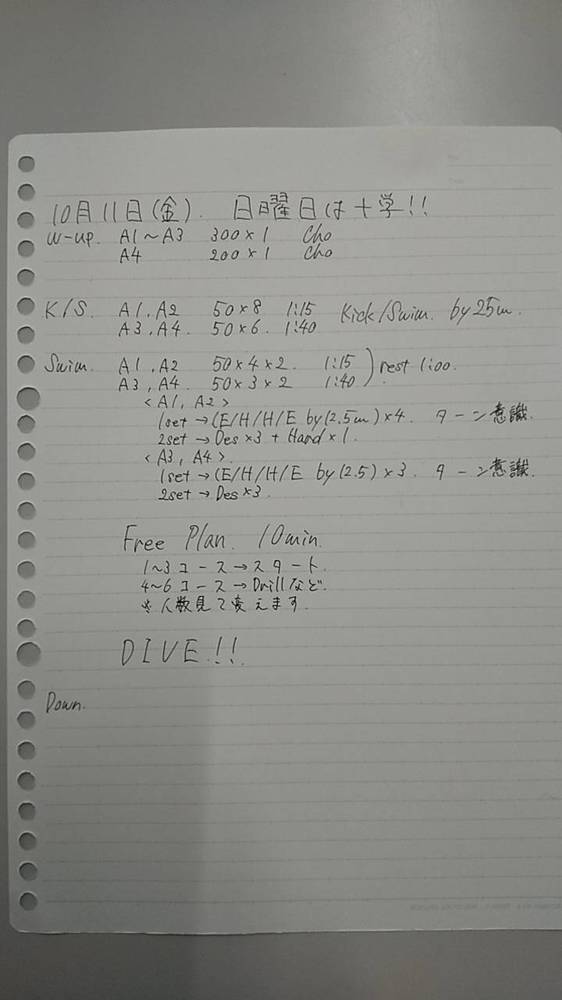 10月11日(金). 日曜日は十学!!
W-up. A1~A3 300×1 Cho
A4 200×1 Cho
K/S. A1.A2 50×8 1:15 Kick/Swim. by 25m.
A3.A4. 50×6. 1:40
Swim. A1.A2 50×4×2. 1:15 ) rest 1:00.
A3,A4. 50×3×2 1:40
<A1, A2>
1set→(E/H/H/E by12.5m)×4. ターン意識.
2set→Des×3 + Hard×1.
<A3, A4>.
1set→(E/H/H/E by12.5)×3. ターン意識.
2set→Des×3.
Free Plan. 10min.
1~3コース→スタート.
4~6コース→Drillなど.
※人数見て変えます.
DIVE!!
Down.